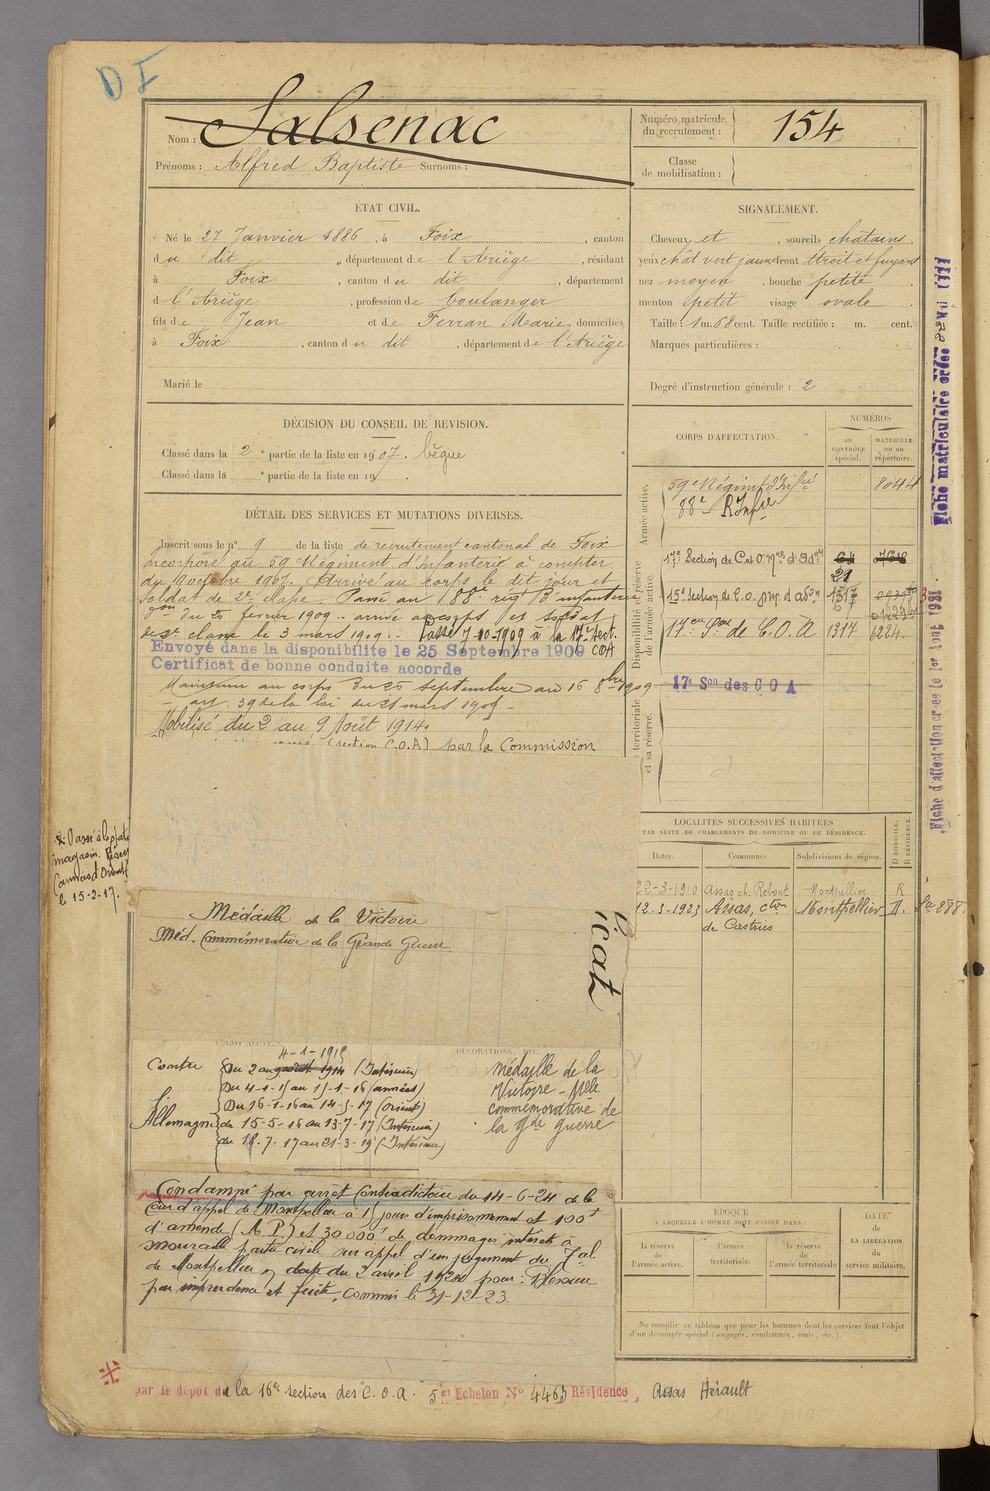 D I
Nom : Salsenac
Prénoms : Alfred Baptiste Surnoms :
Numéro matricule du recrutement : 154
Classe de mobilisation :
ÉTAT CIVIL.
Né le 27 Janvier 1886, à Foix, canton
du dit, département de l'Ariège, résidant
à Foix, canton du dit, département
d l'Ariège, profession de boulanger
fils de Jean et de Ferran Marie, domiciliés
à Foix, canton du dit, département de l'Ariège
Marié le
SIGNALEMENT.
Cheveux et , sourcils châtains.
yeux chât vert jaune front étroit et fuyant
nez moyen, bouche petite
menton petit visage ovale
Taille : 1 m. 68 cent. Taille rectifiée : m. cent.
Marques particulières :
Degré d'instruction générale : 2
DÉCISION DU CONSEIL DE REVISION.
Classé dans la 2e partie de la liste en 1907. bègue
Classé dans la e partie de la liste en 19 .
DÉTAIL DES SERVICES ET MUTATIONS DIVERSES.
Inscrit sous le n° 9 de la liste de recrutement cantonal de Foix
Incorporé au 59e Régiment d'Infanterie à compter
du 9 octobre 1907. Arrivé au corps le dit jour et
soldat de 2e classe. Passé au 88e rég d'infanterie
du 25 février 1909.. arrivé au corps et soldat
de 2e classe le 3 mars 1909.. Passé 7-10-1909 à la 17e Sect. COA
Envoyé dans la disponibilité le 25 Septembre 1909
Certificat de bonne conduite accordé
Maintenu au corps du 25 septembre au 16 8bre 1909
art. 39 de la loi du 21 mars 1905 -
Mobilisé du 2 au 9 Août 1914.
(section C.O.A) par la Commission
CORPS D'AFFECTATION.
NUMÉROS
au contrôle spécial.
MATRICULE ou au répertoire.
Armée active.
59e Régimt d'Infrie 8044
88e R Infie
Disponibilité et réserve de l'armée active.
17e Section de C. et O. mres d'Adon
15e Section de C.O. m. d'adon 1317
17eme Son de C.O.A 1317 1224
17e Son des C O A
territoriale et sa réserve.
Fiche matriculaire créée
Fiche d'affectation créée le 1er Août 1931.
LOCALITÉS SUCCESSIVES HABITÉES
PAR SUITE DE CHANGEMENTS DE DOMICILE OU DE RÉSIDENCE.
Dates. Communes. Subdivisions de région. D DOMICILE. R RÉSIDENCE.
22-3-1910 Assas ch. Rebout Montpellier R
12-3-1923 Assas, cton de Castries Montpellier D.
magasin
Armées d'Orient
le 15-2-17.
Médaille de la Victoire
Méd. Commémorative de la Grande Guerre
icat
Contre l'Allemagne
4-1-1915
Du 2 août 1914 (Intérieur)
Du 4-1-15 au 15-1-16 (armées)
Du 16-1-16 au 14-5-17 (Orient)
du 15-5-16 au 13-7-17 (Intérieur)
du 14-7-17 au 21-3-19 (Intérieur)
médaille de la
Victoire - Mlle
commémorative de
la gde guerre
Condamné par arrêt contradictoire du 14-6-24 de la
cour d'appel de Montpellier à 15 jours d'emprisonnement et 100f
d'amende (A.P.) et 30000f de dommages intérêts à
partie civile sur appel d'un jugement du Tal
de Montpellier en date du 2 avril 1924 pour : Blessure
par imprudence et fuite, commis le 31-12-23.
ÉPOQUE
À LAQUELLE L'HOMME DOIT PASSER DANS :
la réserve de l'armée active.
l'armée territoriale.
la réserve de l'armée territoriale
DATE de LA LIBÉRATION du service militaire.
Ne remplir ce tableau que pour les hommes dont les services font l'objet
d'un décompte spécial (engagés, condamnés, omis, etc.).
par le dépôt de la 16e section des C.O.A. 5e Echelon N° 4463 Résidence, Assas Hérault